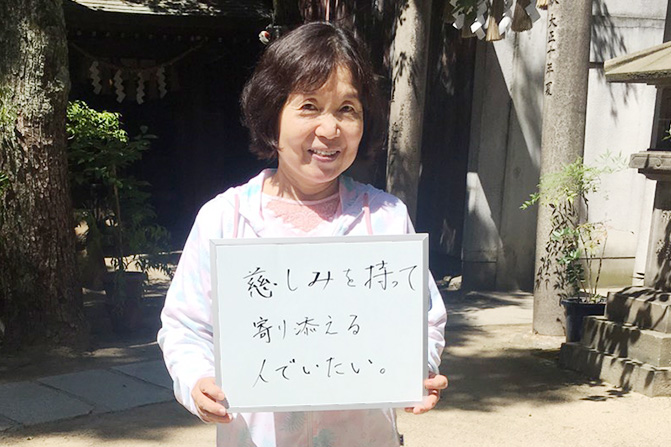 大正十年夏
慈しみを持って
寄り添える
人でいたい。